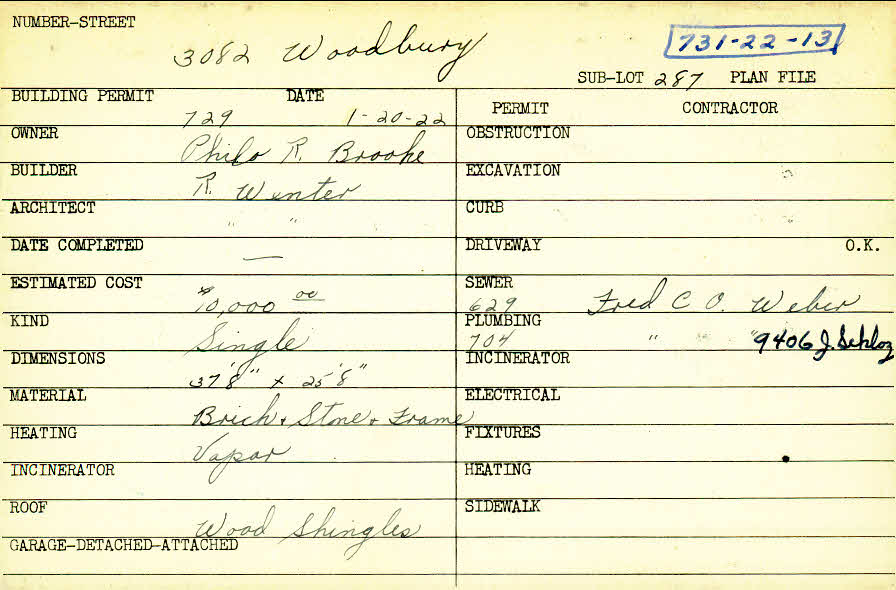 NUMBER-STREET
3082 Woodbury
731-22-13
SUB-LOT 287 PLAN FILE
BUILDING PERMIT DATE
729 1-20-22
OWNER
Philo R. Brooke
BUILDER
R. Winter
ARCHITECT
" "
DATE COMPLETED
—
ESTIMATED COST
$10,000 00
KIND
Single
DIMENSIONS
37'8" x 25'8"
MATERIAL
Brick + Stone + Frame
HEATING
Vapor
INCINERATOR
ROOF
Wood Shingles
GARAGE-DETACHED-ATTACHED
PERMIT CONTRACTOR
OBSTRUCTION
EXCAVATION
CURB
DRIVEWAY O.K.
SEWER
629 Fred C O. Weber
PLUMBING
704 " " 9406 J. Schloz
INCINERATOR
ELECTRICAL
FIXTURES
HEATING
SIDEWALK